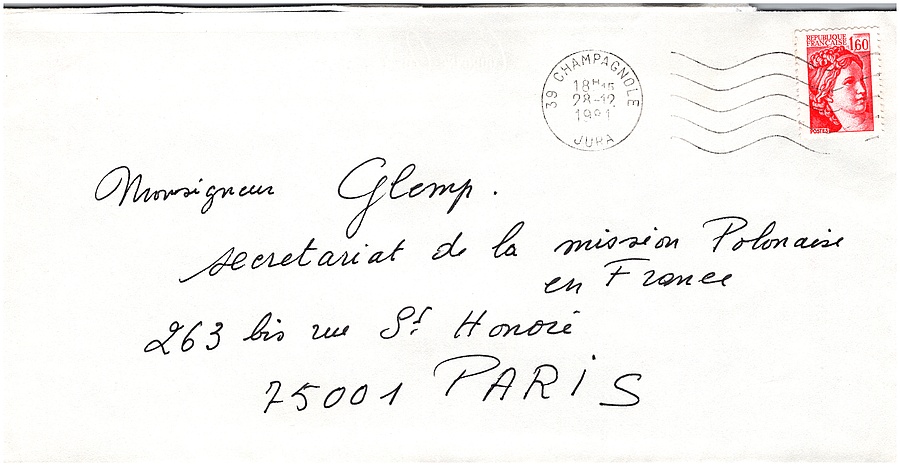 REPUBLIQUE
FRANÇAISE
1,60
POSTES
39 CHAMPAGNOLE
18H15
28-12
1981
JURA
Monsigneur Glemp.
secretariat de la mission Polonaise
en France
263 bis rue St Honoré
75001 PARIS